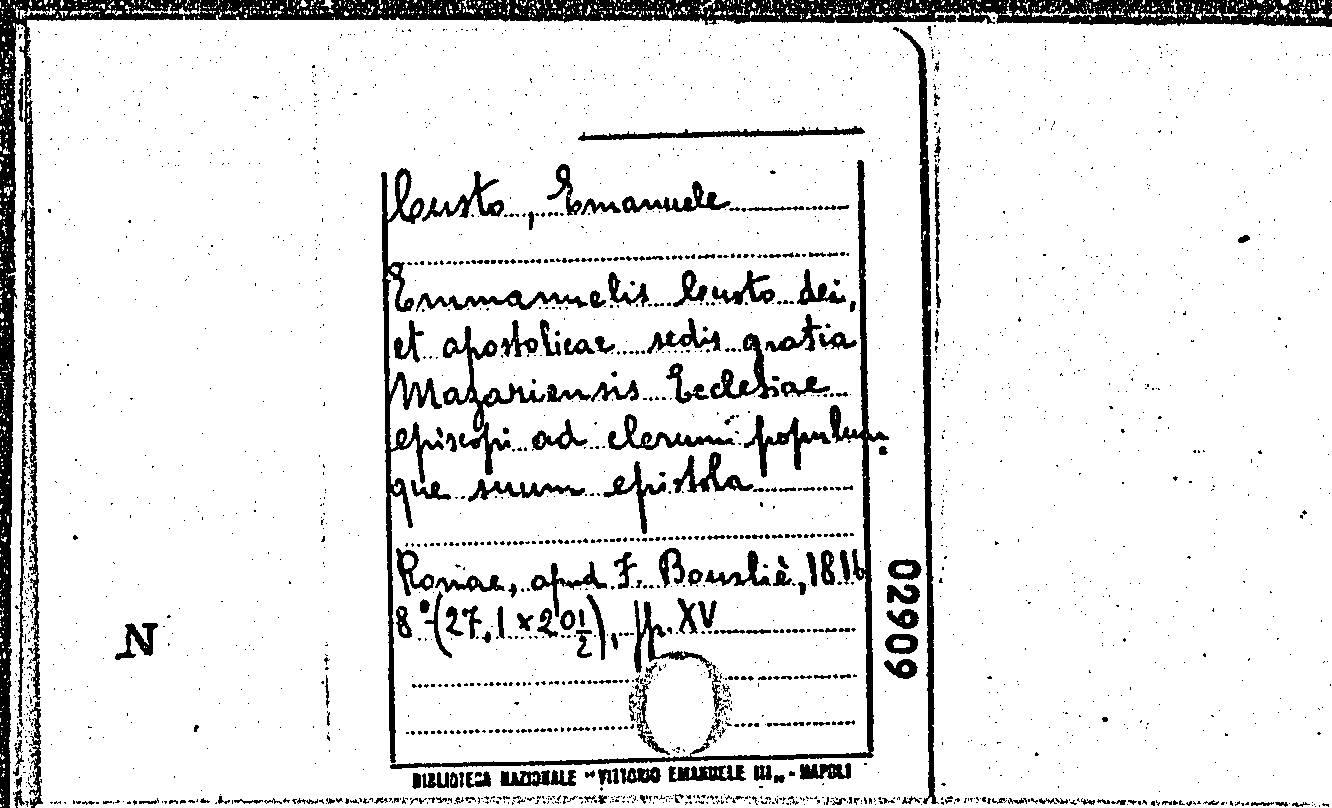 Custo, Emanuele
Emmanuelis Custo dei,
et apostolicae sedis gratia
Mazariensis Ecclesiae
episcopi ad clerum populum
que suum epistola
Romae, apud F. Bourliè, 1816
8º (27,1 x 20 1/2), pp. XV
02909
N
BIBLIOTECA NAZIONALE "VITTORIO EMANUELE III„ - NAPOLI